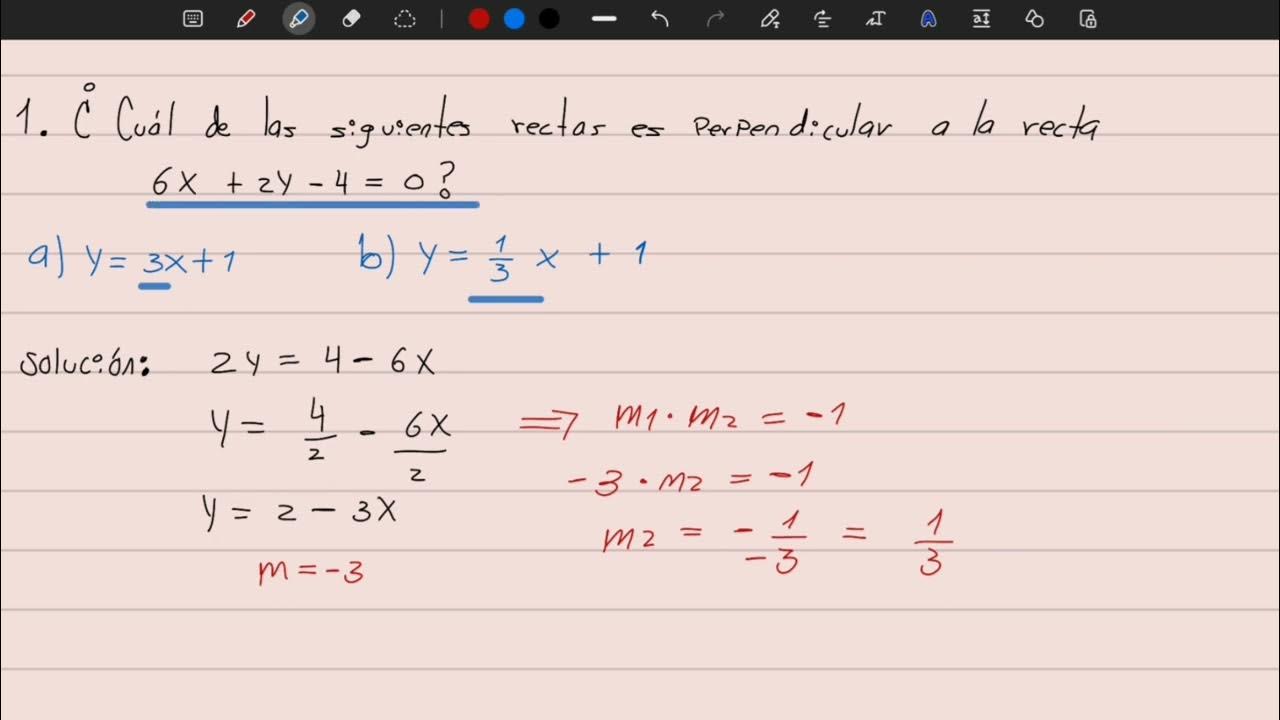 1. ¿ Cuál de las siguientes rectas es perpendicular a la recta
6x + 2y - 4 = 0 ?
a) y = 3x + 1 b) y = 1/3 x + 1
Solución: 2y = 4 - 6x
y = 4/2 - 6x/2 ⟹ m1 · m2 = -1
-3 · m2 = -1
y = 2 - 3x
m2 = - 1/-3 = 1/3
m = -3